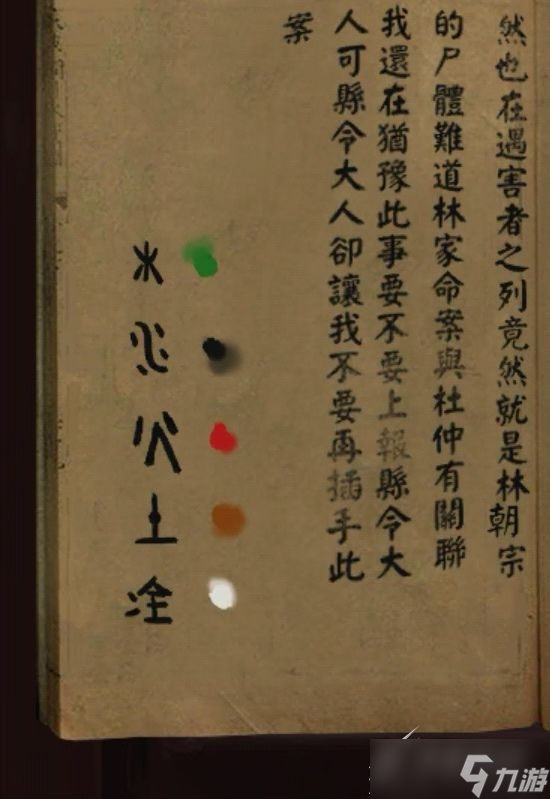 然也在遇害者之列竟然就是林朝宗
的尸體難道林家命案與杜仲有關聯
我還在猶豫此事要不要上報縣令大
人可縣令大人卻讓我不要再插手此
案
木
水
火
土
金
九游